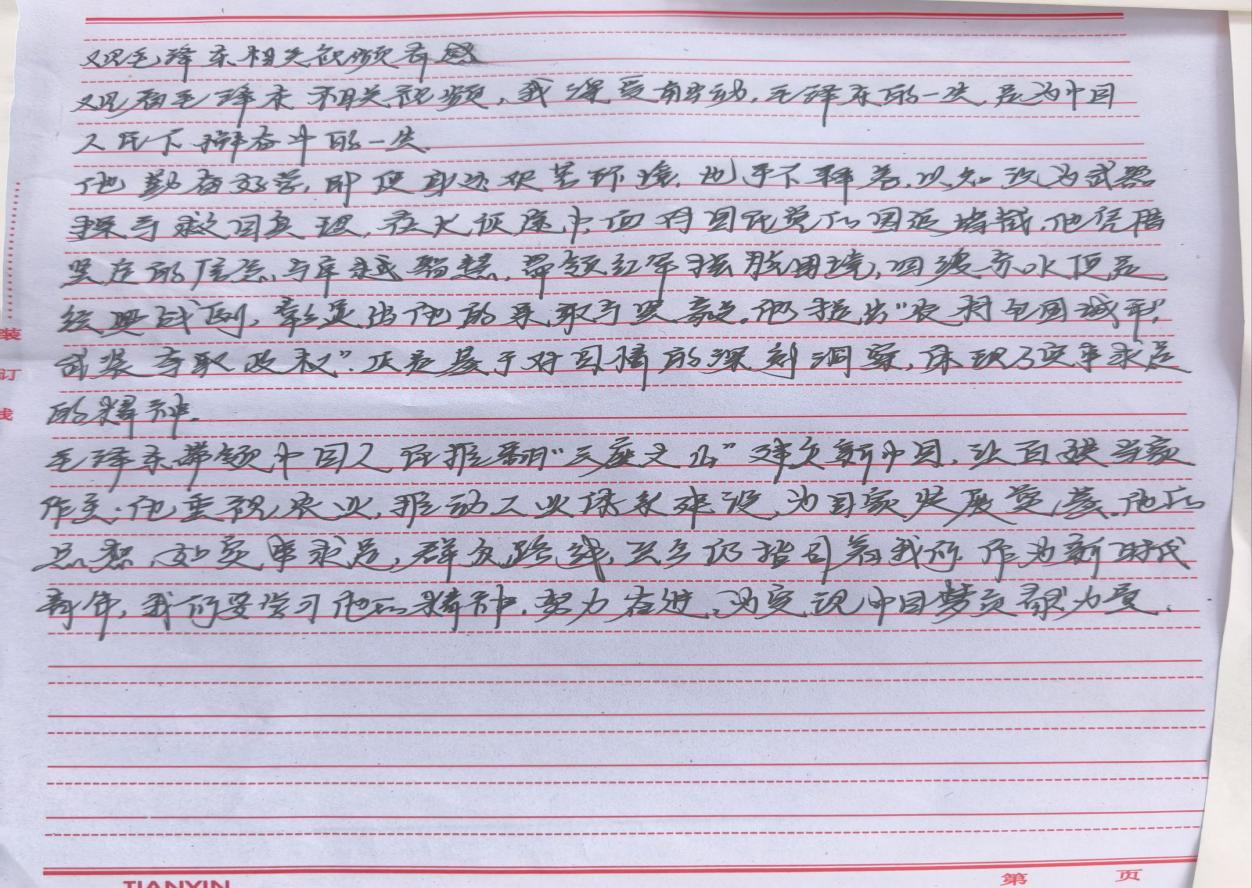 观毛泽东相关视频有感
观看毛泽东相关视频，我深受触动，毛泽东的一生，是为中国
人民不懈奋斗的一生
他勤奋好学，即使身处艰苦环境，也手不释卷，以知识为武器
探寻救国真理，在长征途中，面对国民党的围追堵截，他凭借
坚定的信念与卓越智慧，带领红军摆脱困境，四渡赤水便是
经典战例，彰显出他的果敢与坚毅。他提出"农村包围城市，
武装夺取政权"。正是基于对国情的深刻洞察，体现了实事求是
的精神.
毛泽东带领中国人民推翻"三座大山"建立新中国，让百姓当家
作主.他重视农业，推动工业体系建设，为国家发展奠基.他的
思想，如实事求是，群众路线，至今仍指引着我们 作为新时代
青年，我们要学习他的精神，努力奋进，为实现中国梦贡献力量.
装
订
线
TIANYIN
第 页